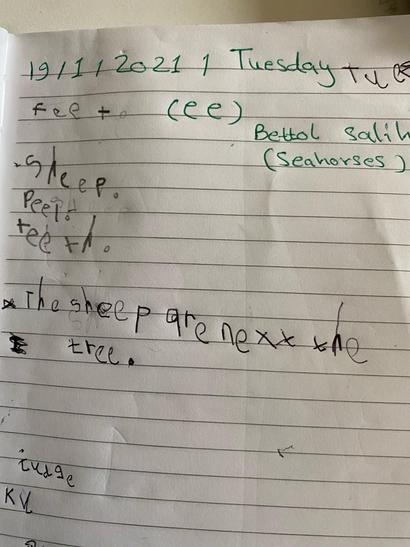 19/1/2021 / Tuesday Tue
feet. (ee)
Bettol Salih
(Seahorses)
Sleep.
Peep.
teeth.
The sheep are next the
tree.